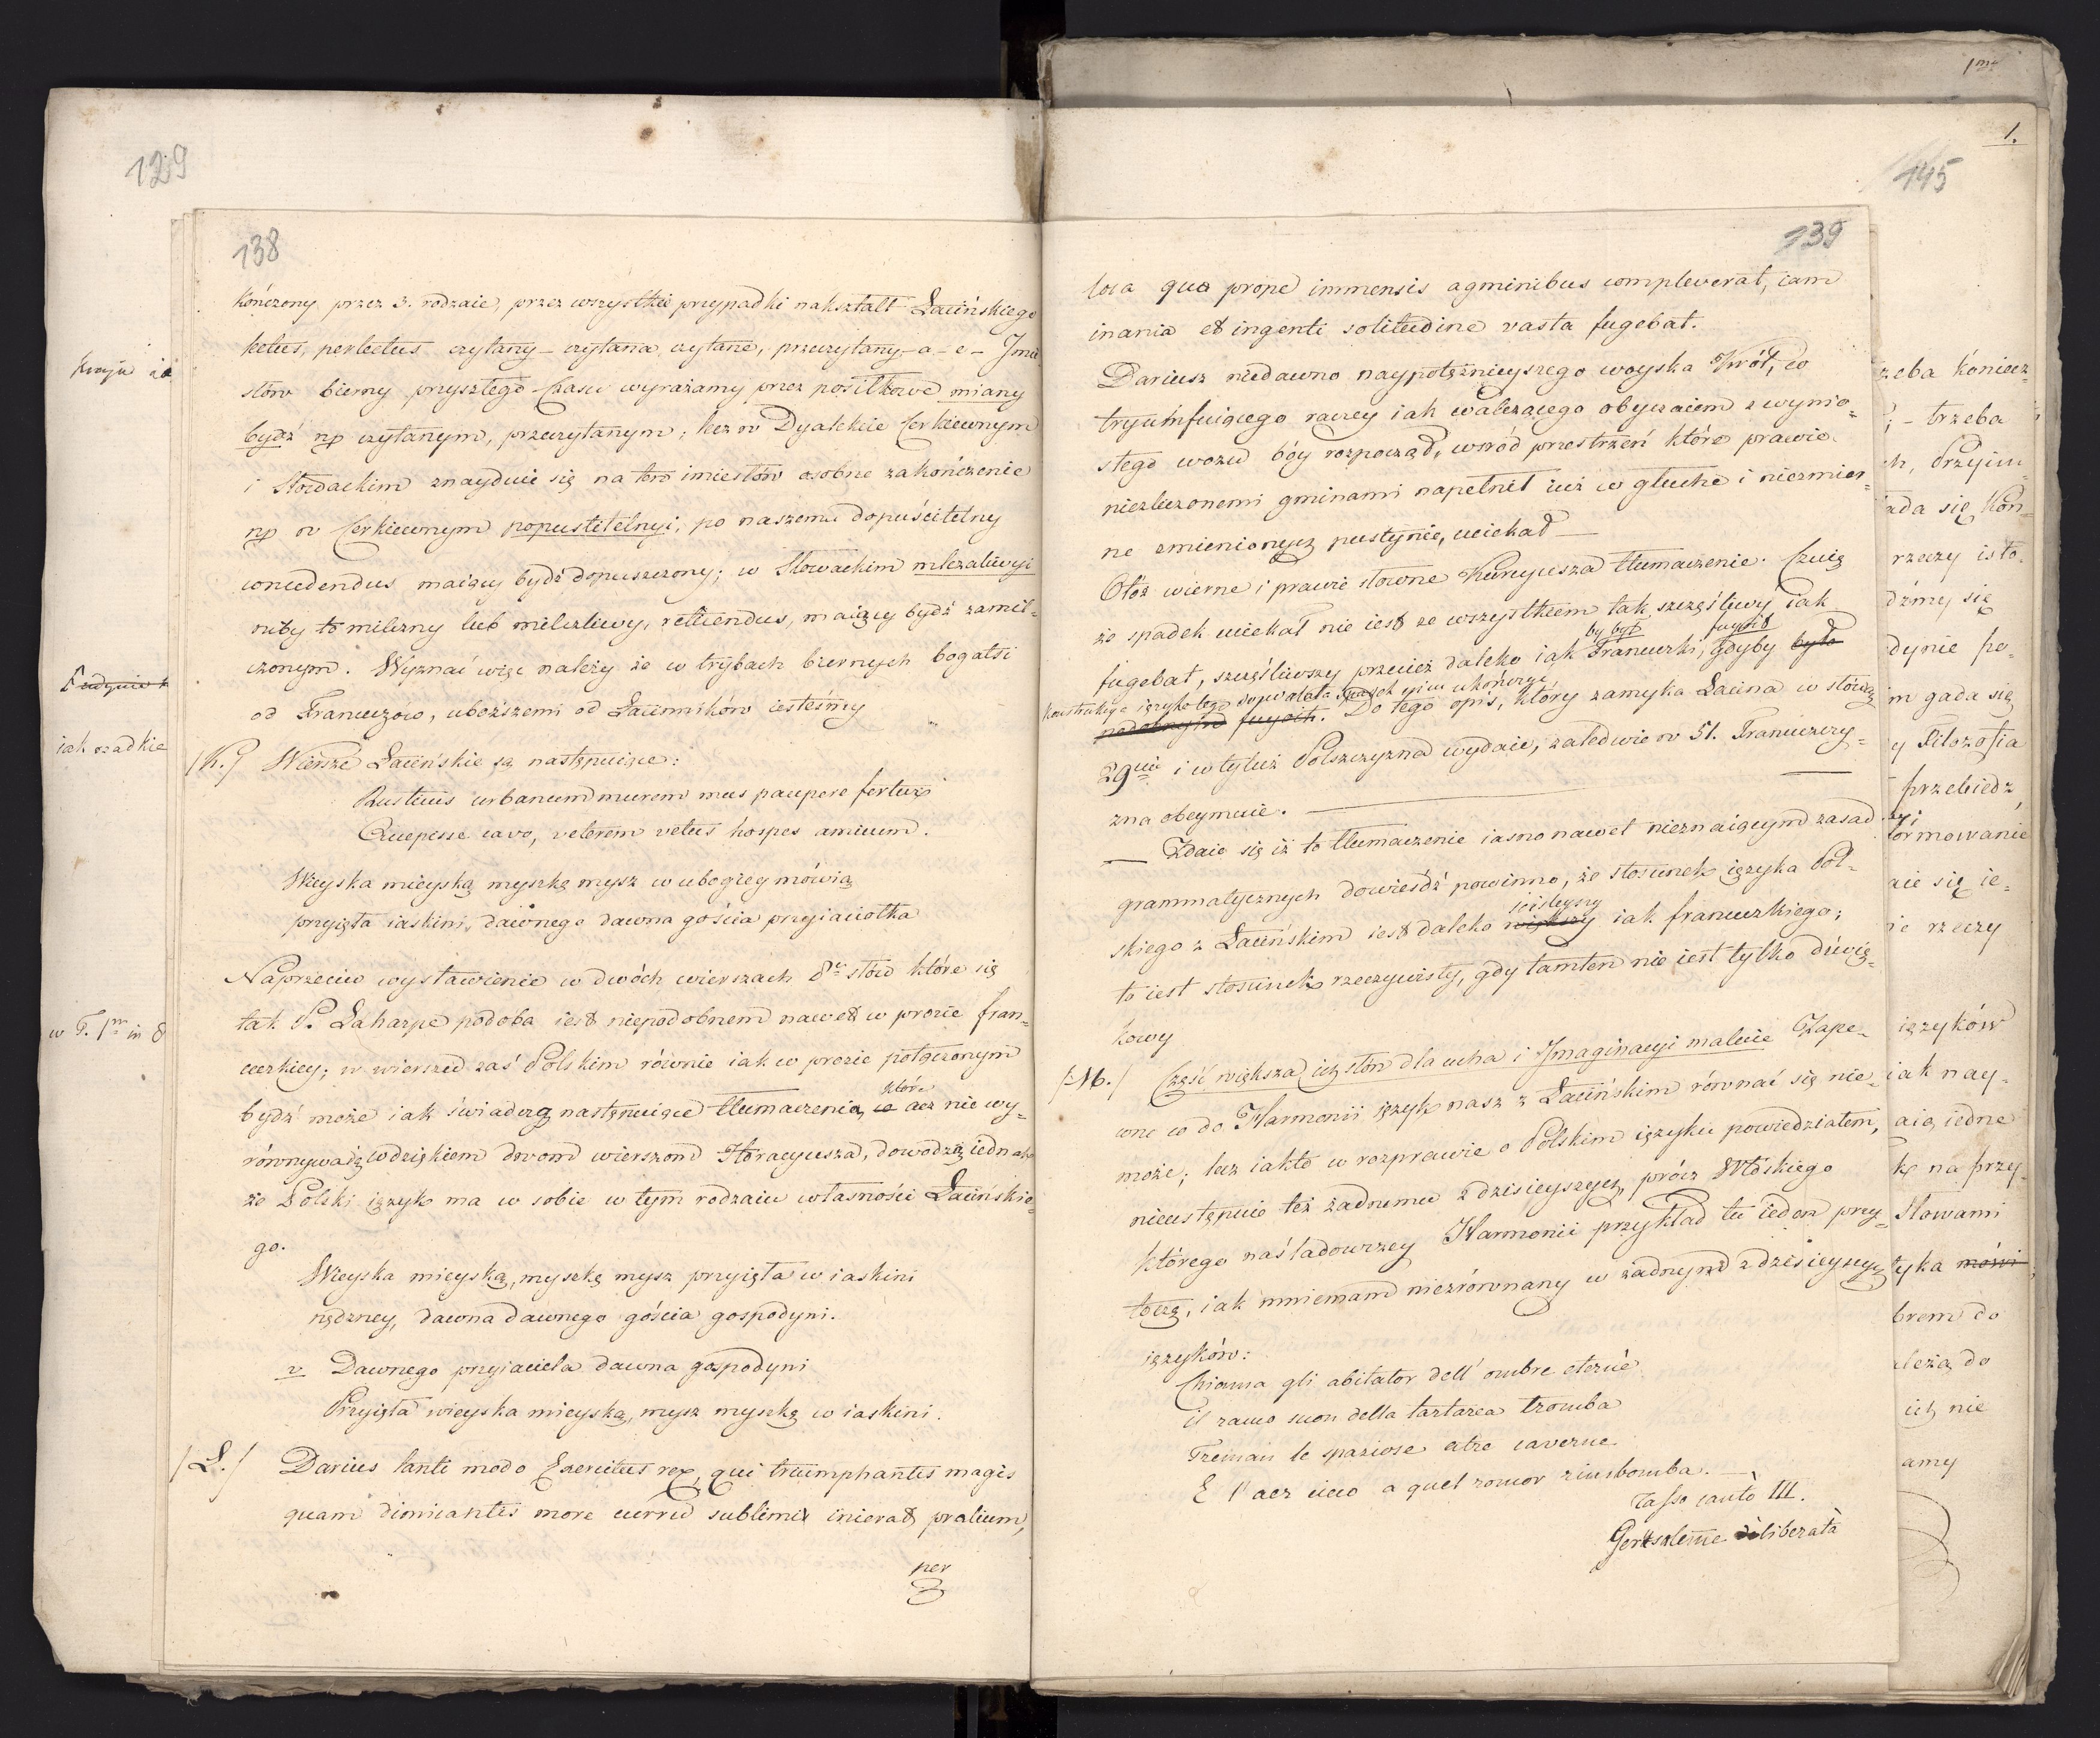 129
138
kończony przez 3. rodzaie, przez wszystkie przypadki nakształt Łacińskiego
lectus, perlectus czytany – czytana czytane, przeczytany – a – e – Imie
słów bierny przyszłego czasu wyrażamy przez posiłkowe miany
bydź np czytanym, przeczytanym; lecz w Dyalekcie Cerkiewnym
i Słowackim znayduie się na ten imiesłów osobne zakończenie
np w Cerkiewnym popustitelnyi, po naszemu dopuścitelny
concedendus maiący bydź dopuszczony; w Słowackim mlczaliwyi
niby to milczny lub milczliwy, reticendus, maiący bydź zamil-
czonym. Wyznać więc należy że w trybach biernych bogatsi
od Francuzów, uboższemi od Łacinników iesteśmy
/K./ Wiersze Łacińskie są następuiące:
Rusticus urbanum murem mus paupere fertur
Excepisse cavo, veterem vetus hospes amicum.
Wieyska mieyską myszkę mysz w ubogiey mówią
przyięła iaskini, dawnego dawna gościa przyiaciołka
Naprzeciw wystawienie w dwóch wierszach 8u słów które się
tak P. Laharpe podoba iest niepodobnem nawet w prozie fran-
cuzkiey; w wierszu zaś Polskim równie iak w prozie połączonym
bydź może iak świadczą następuiące tłumaczenia, które acz nie wy-
równywaią wdziękiem dwom wierszom Horacyusza, dowodzą iednak
że Polski ięzyk ma w sobie w tym rodzaiu własności Łacińskie-
go.
Wieyska mieyską, myszkę mysz przyięła w iaskini
nędzney, dawna dawnego gościa gospodyni.
v Dawnego przyiaciela dawna gospodyni
Przyięła wieyska mieyską, mysz myszkę w iaskini.
/L./ Darius tanti modo Exercitus rex, qui triumphantis magis
quam dimicantis more curru sublimis inierat prælium,
per
kraju ia
iak rzadkie
w T. 1m in 8
139
loca quæ prope immensis agminibus compleverat, iam
inania et ingenti solitudine vasta fugebat.
Dariusz niedawno naypotężnieyszego woyska Król, co
tryumfuiącego raczey iak walczącego obyczaiem z wynio-
słego wozu bóy rozpoczął, wśród przestrzeń które prawie
niezliczonemi gminami napełnił iuż w głuche i niezmier-
ne zmienionych pustynie, uciekał —
Otóż wierne i prawie słowne Kurcyusza tłumaczenie. Czuię
że spadek uciekał nie iest ze wszystkiem tak szczęśliwy iak
by był fuyoit
fugebat, szczęśliwszy przecież daleko iak Francuzki, gdyby było
konstrukcya ięzyka tego dozwalała spadek nim ukończyć
podobnym fuyoit. Do tego opis, który zamyka Łacina w słów
29ciu i w tyluż Polszczyzna wydaie, zaledwie w 51. Francuzczy-
zna obeymuie. —
— Zdaie się iż to tłumaczenie iasno nawet nieznaiącym zasad
grammatycznych dowieśdź powinno, że stosunek ięzyka Pol-
ściśleyszy
skiego z Łacińskim iest daleko większy iak francuzkiego;
to iest stosunek rzeczywisty, gdy tamten nie iest tylko dźwię-
kowy
/M./ Część większa ich słów dla ucha i Imaginacyi maluie Zape-
wne co do Harmonii ięzyk nasz z Łacińskim równać się nie
może; lecz iakto w rozprawie o Polskim ięzyku powiedziałem,
nieustępuie też żadnemu z dzisieyszych, prócz Włóskiego
którego naśladowczey Harmonii przykład tu ieden przy-
toczę, iak mniemam niezrównany w żadnym z dzisieyszych
ięzyków:
Chiama gli abitator dell' ombre eterne
il rauco suon della tartarea tromba
Treman le spaziose atre caverne
E l' aer cieco a quel romor rimbomba. —
Tasso canto III.
Gerusalemme liberata
1m
1.
145
zeba koniecz-
; – trzeba
ch, Przyim-
ada się kon-
rzeczy isto-
dźmy się
dynie po-
im gada się
y Filozofia
przebiedz,
formowanie
aie się ie-
ie rzeczy
ięzyków
iak nay-
aią iedne
kę na przy-
Słowami
tyka mówi
brem do
leżą do
ich nie
amy